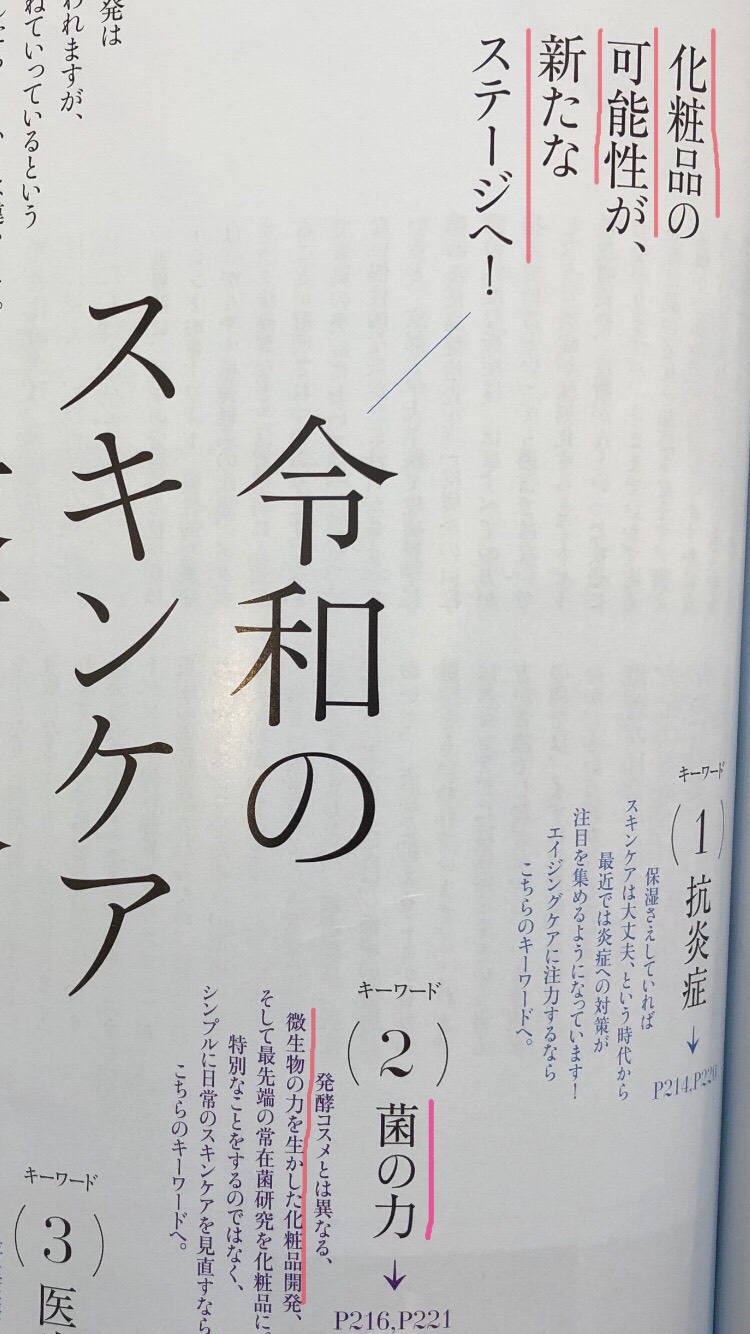 化粧品の
可能性が、
新たな
ステージへ！
令和の
スキンケア
キーワード
(1)
抗炎症
保湿さえしていれば
スキンケアは大丈夫、という時代から
最近では炎症への対策が
注目を集めるようになっています！
エイジングケアに注力するなら
こちらのキーワードへ。
↓
P214,P220
キーワード
(2)
菌の力
発酵コスメとは異なる、
微生物の力を生かした化粧品開発、
そして最先端の常在菌研究を化粧品に。
特別なことをするのではなく、
シンプルに日常のスキンケアを見直すなら
こちらのキーワードへ。
↓
P216,P221
キーワード
(3)
医
発は
われますが、
ねていっているという